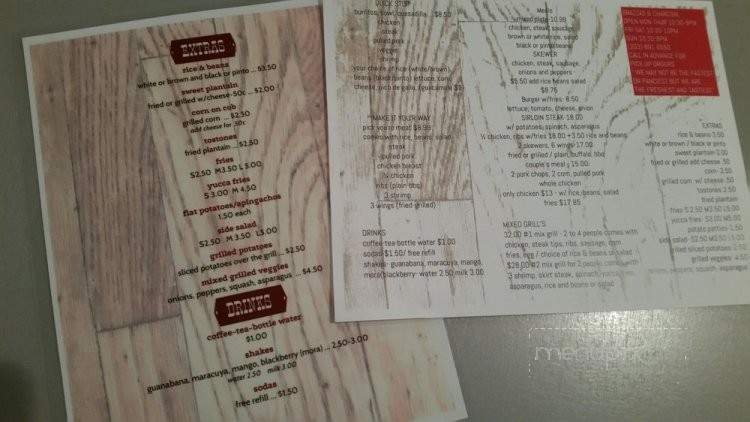 EXTRAS
rice & beans
white or brown and black or pinto ... $3.50
sweet plantain
fried or grilled w/cheese-50c ... $2.00
corn on cob
grilled corn ... $2.50
add cheese for .50c
tostones
fried plantain ... $2.50
fries
S2.50 M3.50 L5.00
yucca fries
S 3.00 M 4.50
flat potatoes/apingachos
1.50 each
side salad
S2.50 M 3.50 L5.00
grilled potatoes
sliced potatoes over the grill ... $2.50
mixed grilled veggies
onions, peppers, squash, asparagus ... $4.50
DRINKS
coffee-tea-bottle water
$1.00
shakes
guanabana, maracuya, mango, blackberry (mora) ... 2.50-3.00
water 2.50 milk 3.00
sodas
free refill ... $1.50
QUICK STOP
burritos, bowl, quesadilla ... $8.50
chicken
steak
pulled pork
veggies
shrimp
your choice of rice (white/brown)
beans (black/pinto) lettuce, corn,
cheese, pico de gallo, (guacamole
MAKE IT YOUR WAY
pick your meat $8.99
comes with rice, beans, salad
steak
pulled pork
chicken breast
¼ chicken
ribs (plain/bbq)
3 shrimp
3 wings (fried grilled)
DRINKS
coffee-tea-bottle water $1.00
sodas $1.50/ free refill
shakes- guanabana, maracuya, mango,
mora(blackberry- water 2.50 milk 3.00
Meals
plate 10.99
chicken, steak, sausage,
brown or white rice, salad
black or pinto beans
SKEWER
chicken, steak, sausage,
onions and peppers
$5.50 add rice beans salad
$8.75
Burger w/fries: 8.50
lettuce, tomato, cheese, onion
SIRLOIN STEAK 18.00
w/ potatoes, spinach, asparagus
½ chicken, ribs w/fries $8.00 +3.50 rice and beans
2 skewers, 6 wings 17.00
fried or grilled / plain, buffalo, bbq
couple's meal 15.00
2 pork chops, 2 corn, pulled pork
whole chicken
only chicken $13 - w/ rice, beans, salad
fries $17.95
MIXED GRILL'S
32.00 #1 mix grill - 2 to 4 people comes with
chicken, steak tips, ribs, sausage, corn
fries, egg / choice of rice & beans or salad
$28.00 #2 mix grill for 2 people, comes with
3 shrimp, skirt steak, spinach,
asparagus, rice and beans or salad
BRASAS & CHARCOAL
OPEN MON-THUR 10:30-9PM
FRI-SAT 10:30-10PM
SUN 10:30-8PM
CALL IN ADVANCE FOR
PICK UP ORDERS
WE MAY NOT BE THE FASTEST
OR FANCIEST BUT WE ARE
THE FRESHEST AND TASTIEST
EXTRAS
rice & beans 3.50
white or brown / black or pinto
sweet plantain 2.00
fried or grilled add cheese .50
corn- 2.50
grilled corn w/ cheese .50
tostones 2.50
fried plantain
fries S2.50 M3.50 L5.00
yucca fries- S3.00 M5.00
potato patties- 1.50
side salad - S2.50 M3.50 L5.00
grilled sliced potatoes 2.50
grilled veggies 4.50
onions, peppers, squash, asparagus